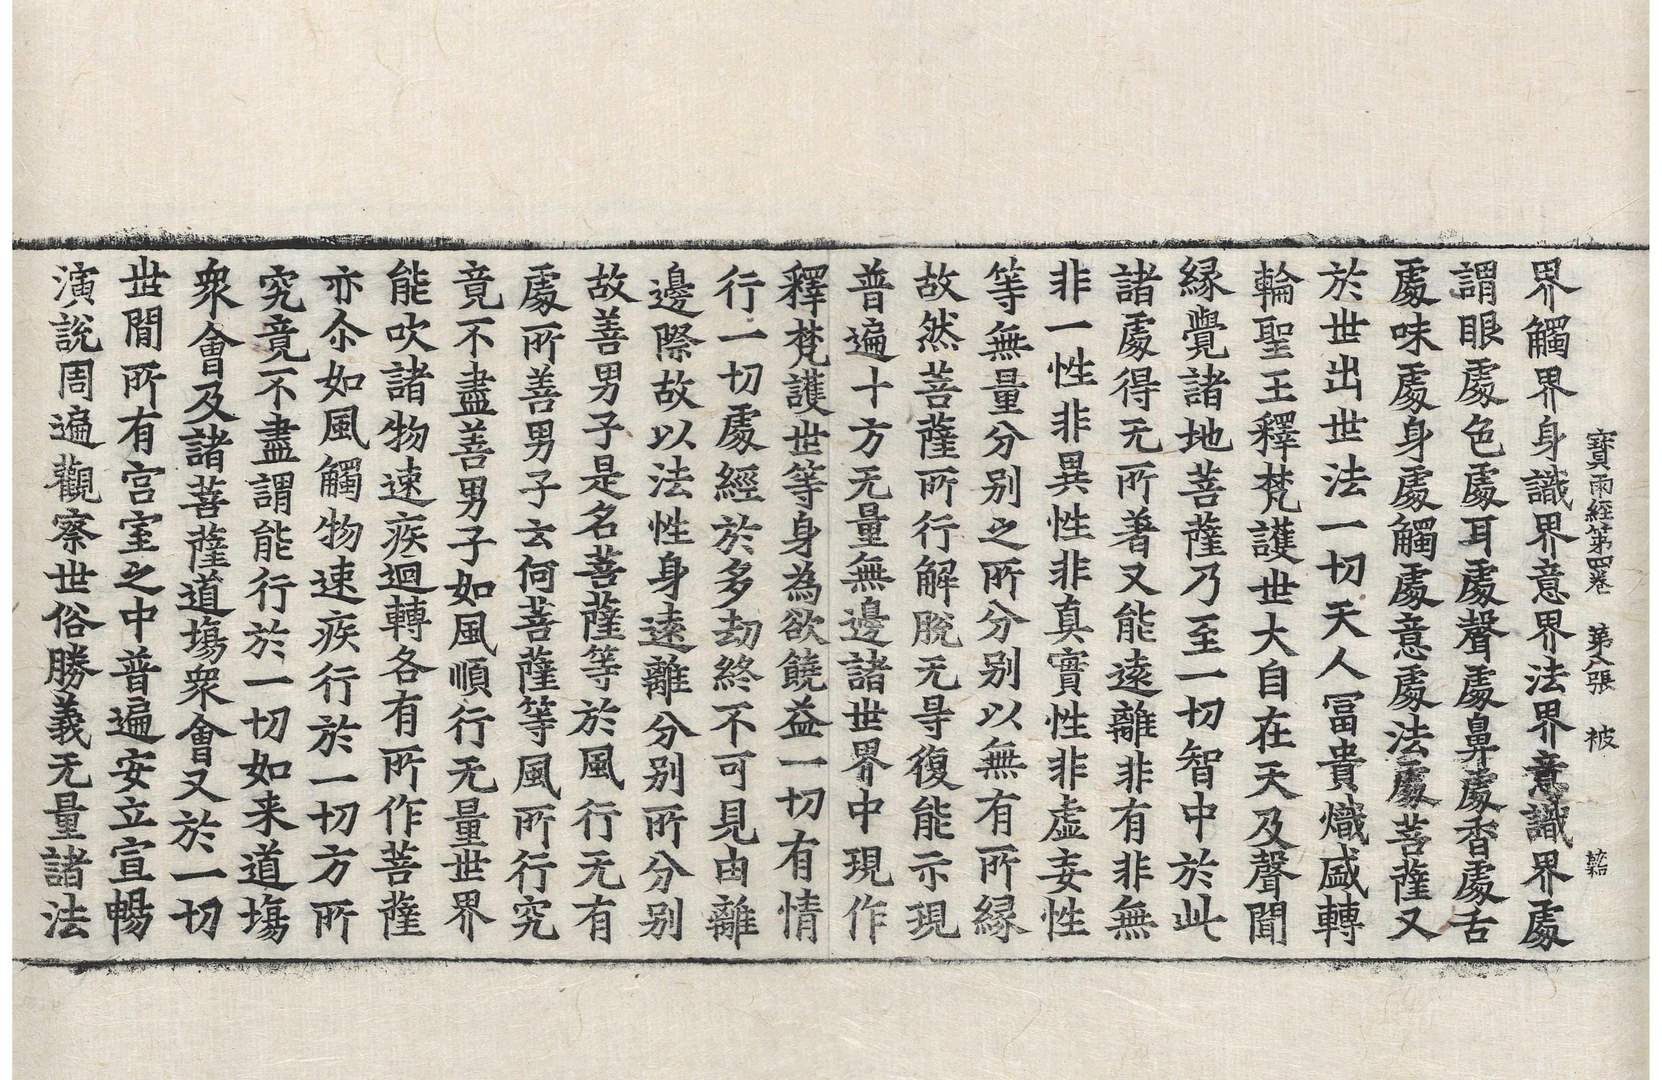 寶雨經第四卷 第八張 被
界觸界身識界意界法界意識界處
謂眼處色處耳處聲處鼻處香處舌
處味處身處觸處意處法處菩薩又
於世出世法一切天人冨貴熾盛轉
輪聖王釋梵護世大自在天及聲聞
緣覺諸地菩薩乃至一切智中於此
諸處得无所著又能遠離非有非無
非一性非異性非真實性非虛妄性
等無量分别之所分别以無有所緣
故然菩薩所行解脫无㝵復能示現
普遍十方无量無邊諸世界中現作
釋梵護世等身為欲饒益一切有情
行一切處經於多劫終不可見由離
邊際故以法性身遠離分别所分别
故善男子是名菩薩等於風行无有
處所善男子云何菩薩等風所行究
竟不盡善男子如風順行无量世界
能吹諸物速疾迴轉各有所作菩薩
亦尒如風觸物速疾行於一切方所
究竟不盡謂能行於一切如来道塲
衆會及諸菩薩道塲衆會又於一切
世間所有宫室之中普遍安立宣暢
演說周遍觀察世俗勝義无量諸法